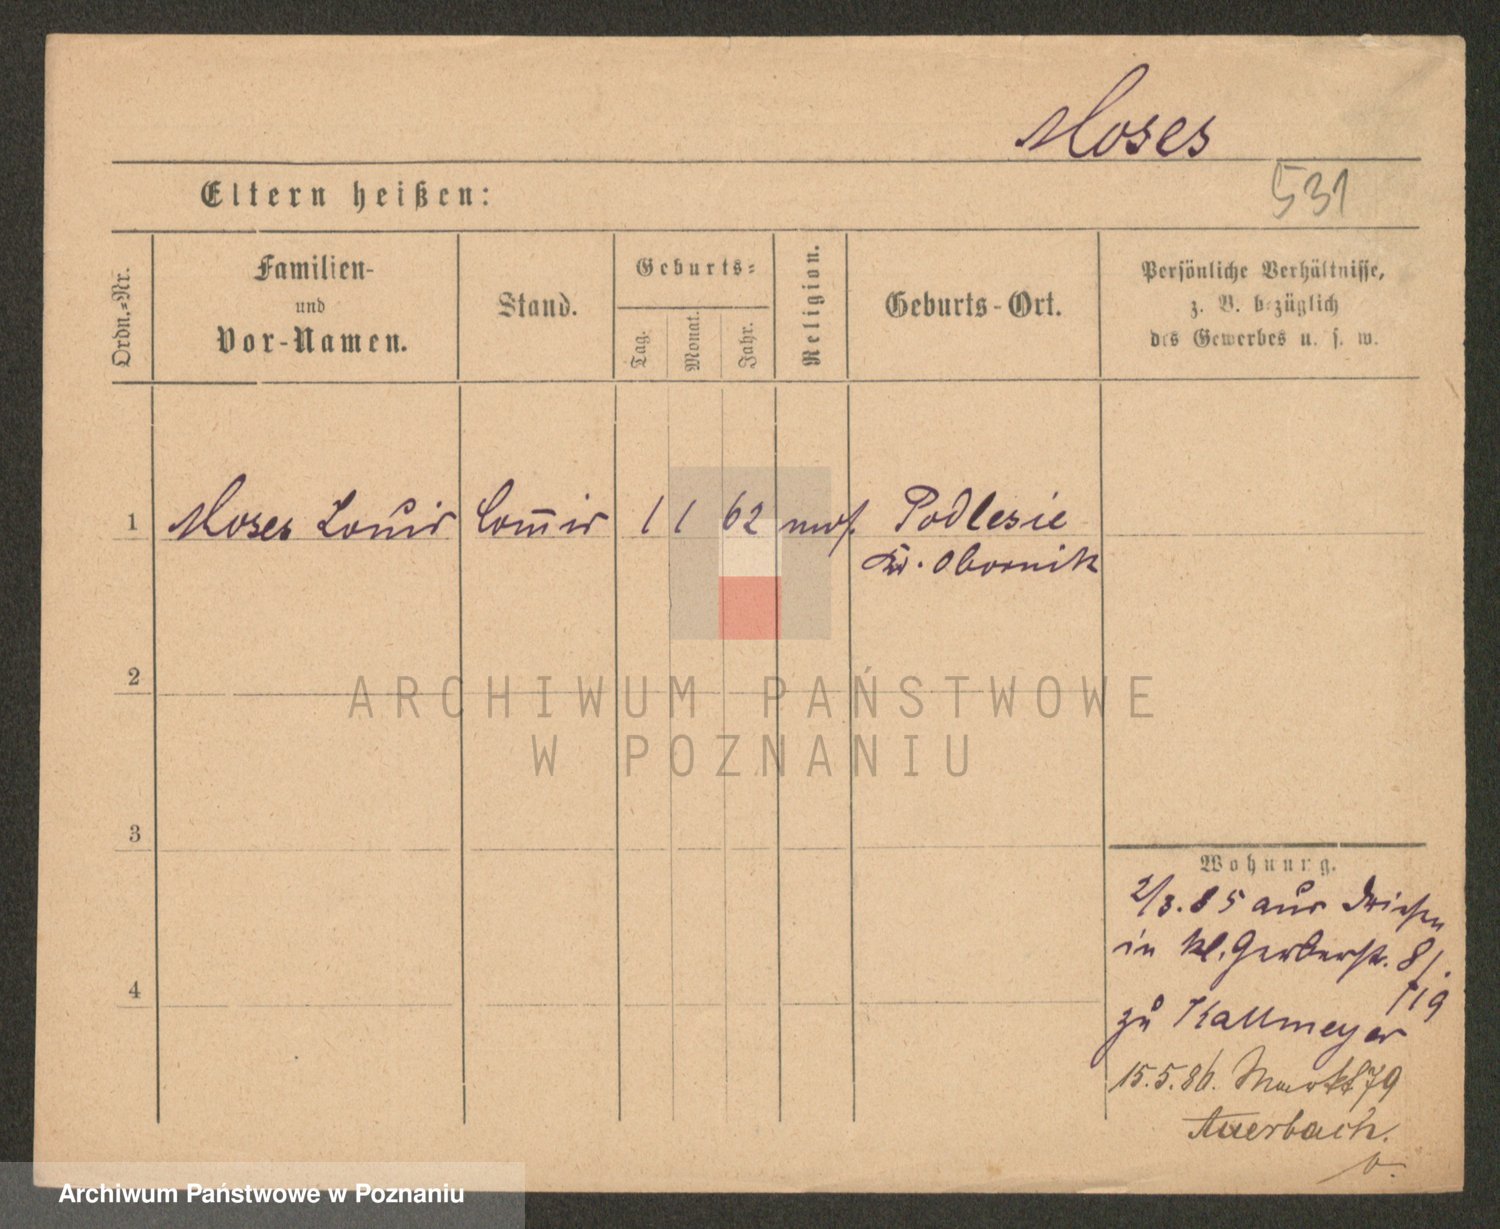 Moses
Eltern heißen:
531
Ordn.-Nr.
Familien-
und
Vor-Namen.
Stand.
Geburts-
Tag.
Monat.
Jahr.
Religion.
Geburts-Ort.
Persönliche Verhältnisse,
z. B. bezüglich
des Gewerbes u. s. w.
1 Moses Louis Com̅is 1 1 62 mos. Podlesie
Kr. Obornik
2
3
4
ARCHIWUM PAŃSTWOWE
W POZNANIU
Wohnung.
2/3.85 aus Driesen
in kl. Gerberstr. 8/.
zu Kallmeyer
15.5.86. Markt 79
Auerbach.
Archiwum Państwowe w Poznaniu